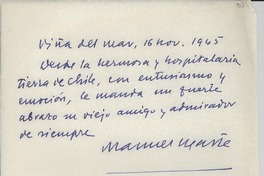 Viña del Mar, 16 nov. 1945
Desde la hermosa y hospitalaria
tierra de Chile, con entusiasmo y
emoción, le manda un fuerte
abrazo su viejo amigo y admirador
de siempre
Manuel